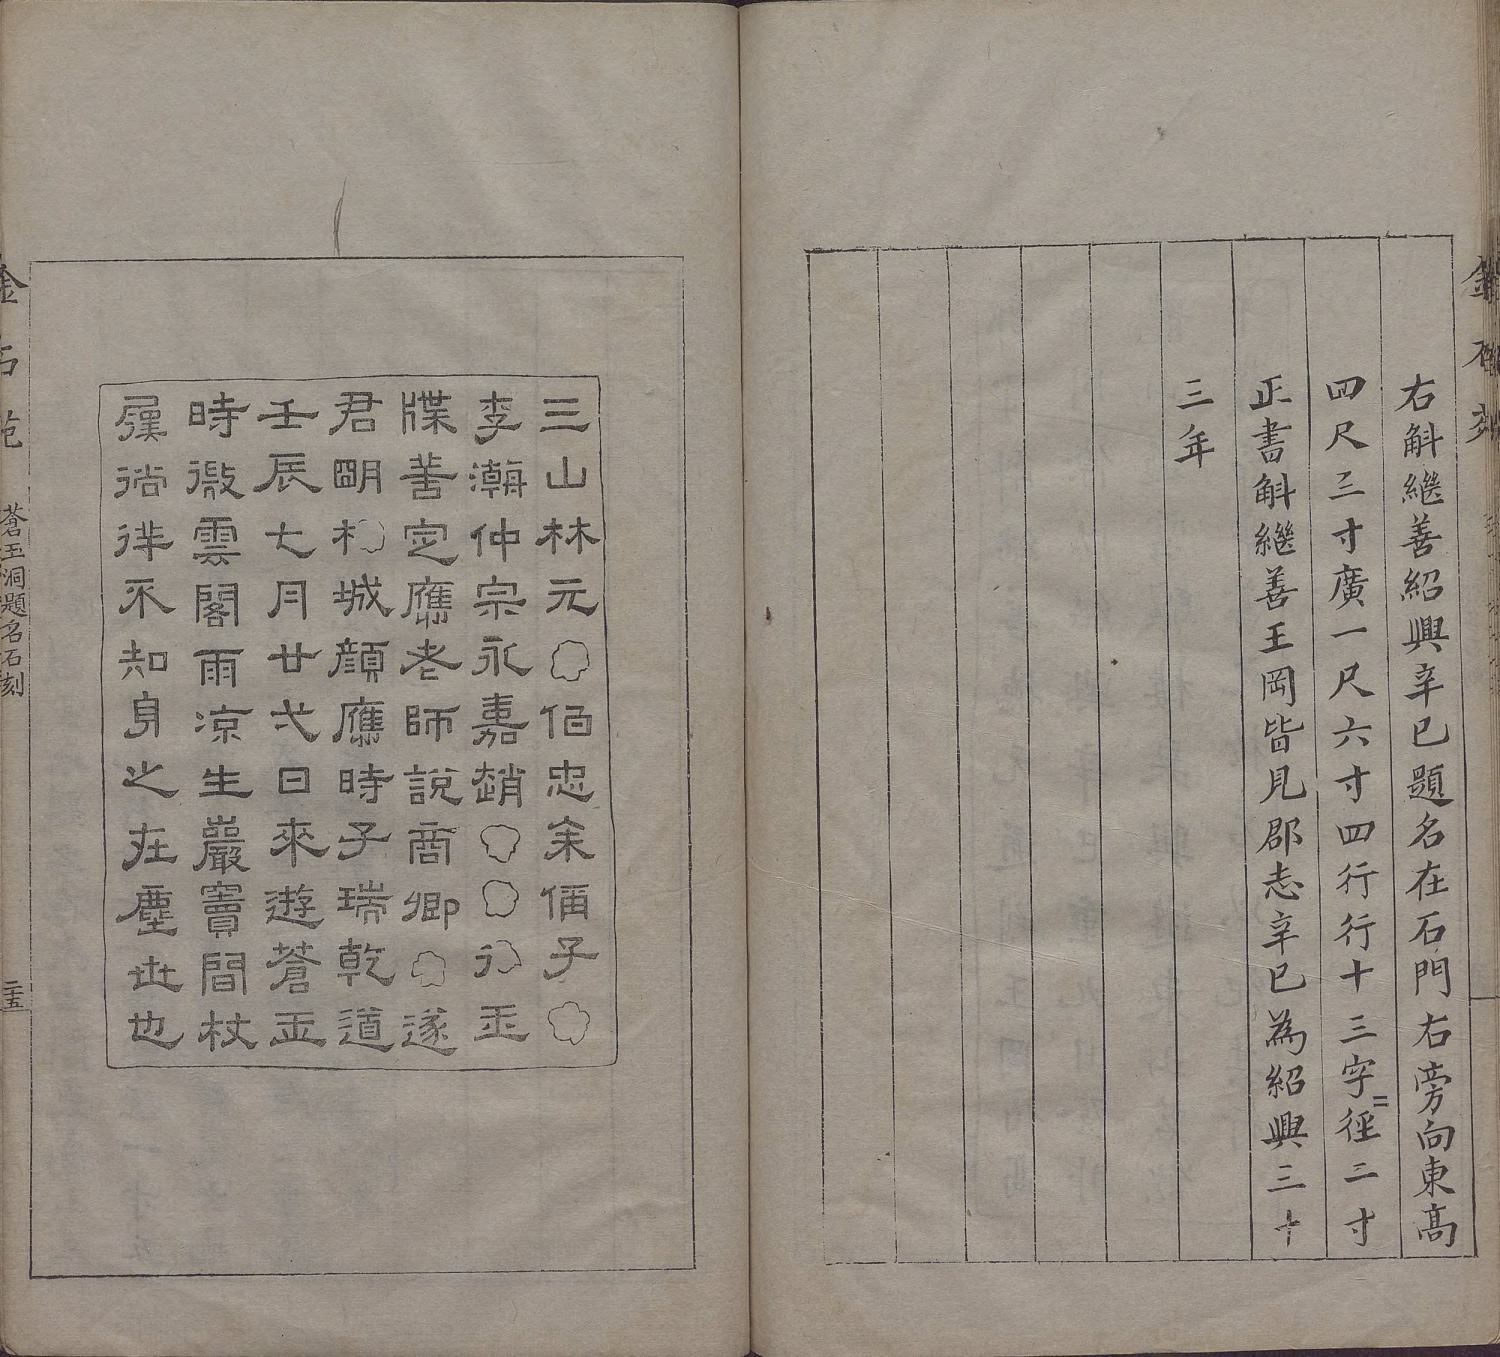 右斛繼善紹興辛巳題名在石門右旁向東高
四尺三寸廣一尺六寸四行行十三字徑二寸
正書斛繼善王岡皆見郡志辛巳為紹興三十
三年
三山林元伯忠余偭子
李潮仲宗永嘉趙玉
牒善定應老師說商卿遂
君明城顏應時子瑞乾道
壬辰七月廿弍日來遊蒼玉
時微雲閣雨凉生巖竇間杖
屨徜徉不知身之在塵世也
金石苑
蒼玉洞題名石刻
二十五